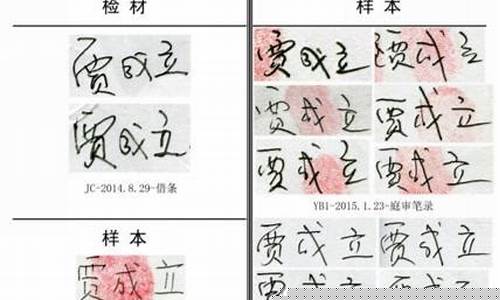 检材
贾成立
贾成立
JC-2014.8.29-借条
样本
贾成立
样本
贾成立 贾成立
贾成立 贾成立
贾成立 贾成立
YB1-2015.1.23-庭审笔录
贾成立 贾成立
贾成立 贾成立